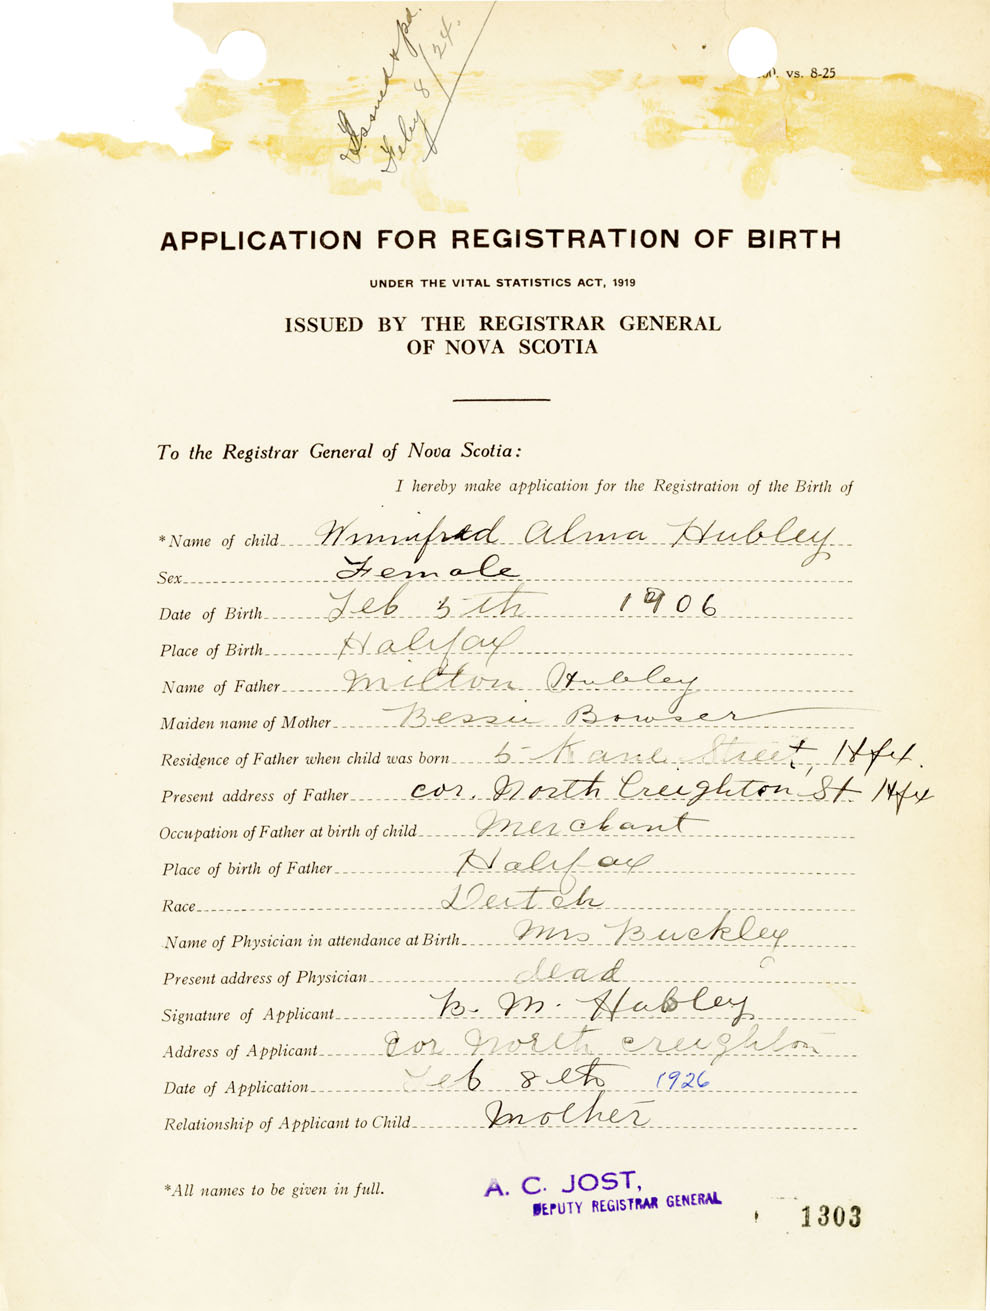 Issued & pd.
Feby 8/24.
00. vs. 8-25
APPLICATION FOR REGISTRATION OF BIRTH
UNDER THE VITAL STATISTICS ACT, 1919
ISSUED BY THE REGISTRAR GENERAL
OF NOVA SCOTIA
To the Registrar General of Nova Scotia:
I hereby make application for the Registration of the Birth of
*Name of child Winnifred Alma Hubley
Sex Female
Date of Birth Feb 5th 1906
Place of Birth Halifax
Name of Father Milton Hubley
Maiden name of Mother Bessie Bowser
Residence of Father when child was born 5 Kane Street, Hfx.
Present address of Father cor. North Creighton St Hfx
Occupation of Father at birth of child Merchant
Place of birth of Father Halifax
Race Deutch
Name of Physician in attendance at Birth Mrs Buckley
Present address of Physician dead
Signature of Applicant B. M. Hubley
Address of Applicant Cor North Creighton
Date of Application Feb 8th 1926
Relationship of Applicant to Child Mother
*All names to be given in full.
A. C. JOST,
DEPUTY REGISTRAR GENERAL
1303